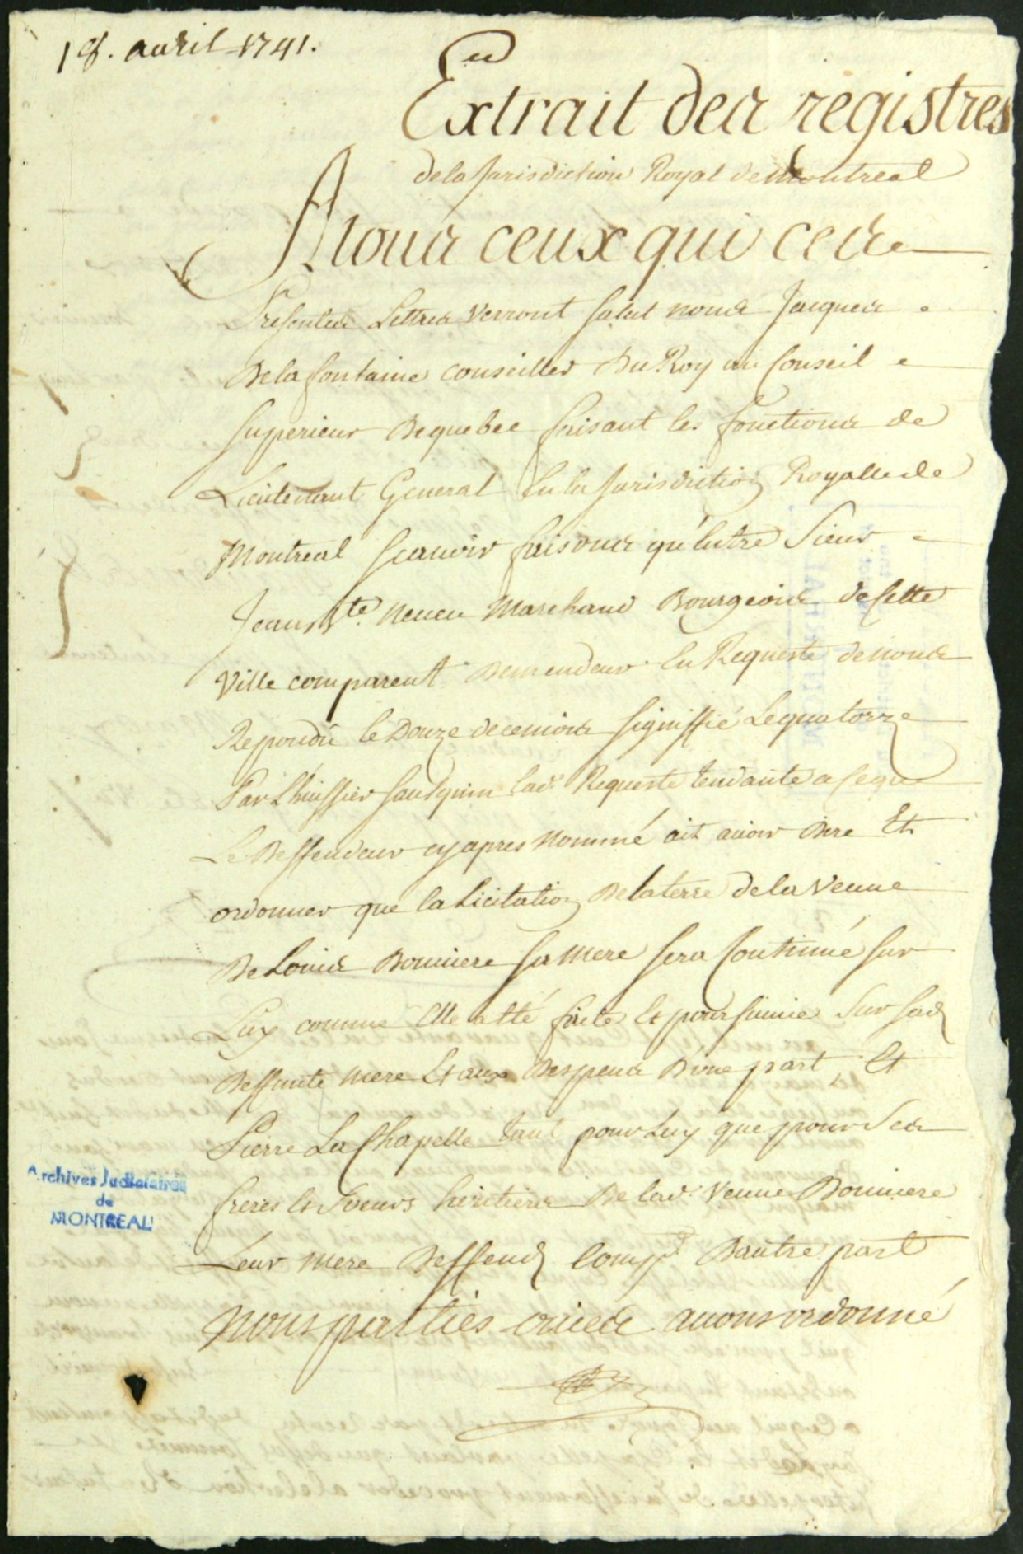 18. avril 1741.
Extrait des registres
de la Jurisdiction Royal de Montreal
A tous ceux qui ces
Presentes Lettres verront salut nous Jacques
De la fontaine conseiller Du Roy au Conseil
Superieur De quebec faisant les fonctions de
Lieutenant General En la Jurisdiction Royalle de
Montreal scavoir faisons qu'Entre Sieur
Jean Bte. Neveu Marchand Bourgeois de Cette
Ville comparent Demendeur En Requeste de nous
Repondu le Douze de ce mois signiffié Le quatorze
Par L'huissier Gaudquin lad. Requeste tendante a Ce que
Le Deffendeur cy apres Nommé ait a voir Dire Et
ordonner que la Licitation De la terre de la Veuve
De Louis Bonniere sa Mere sera Continué sur
Luy comme Elle a Eté faite Et poursuivie Sur sad.
Deffunte Mere Et aux Despens D'une part, Et
Pierre La Chapelle tant pour Luy que pour Ses
freres Et Soeurs heritiers De lad. Veuve Bonniere
Leur Mere Deffend. Comp. D'autre part
Nous parties ouies avons ordonné
Archives Judiciaires
de
MONTREAL